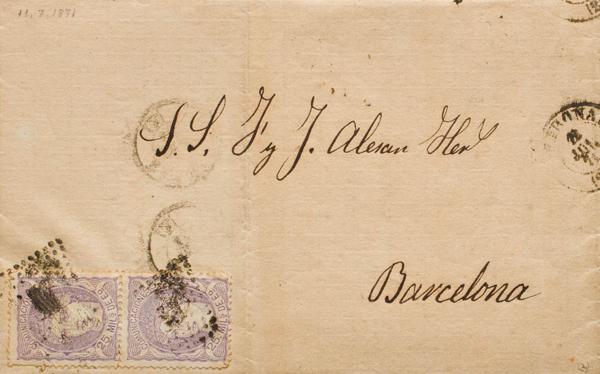 11.7.1871
S. S. F y J. Alesan Her
GERONA
JUL
Barcelona
COMUNICACIONES
25 MILS DE ESC
COMUNICACIONES
25 MILS DE ESC